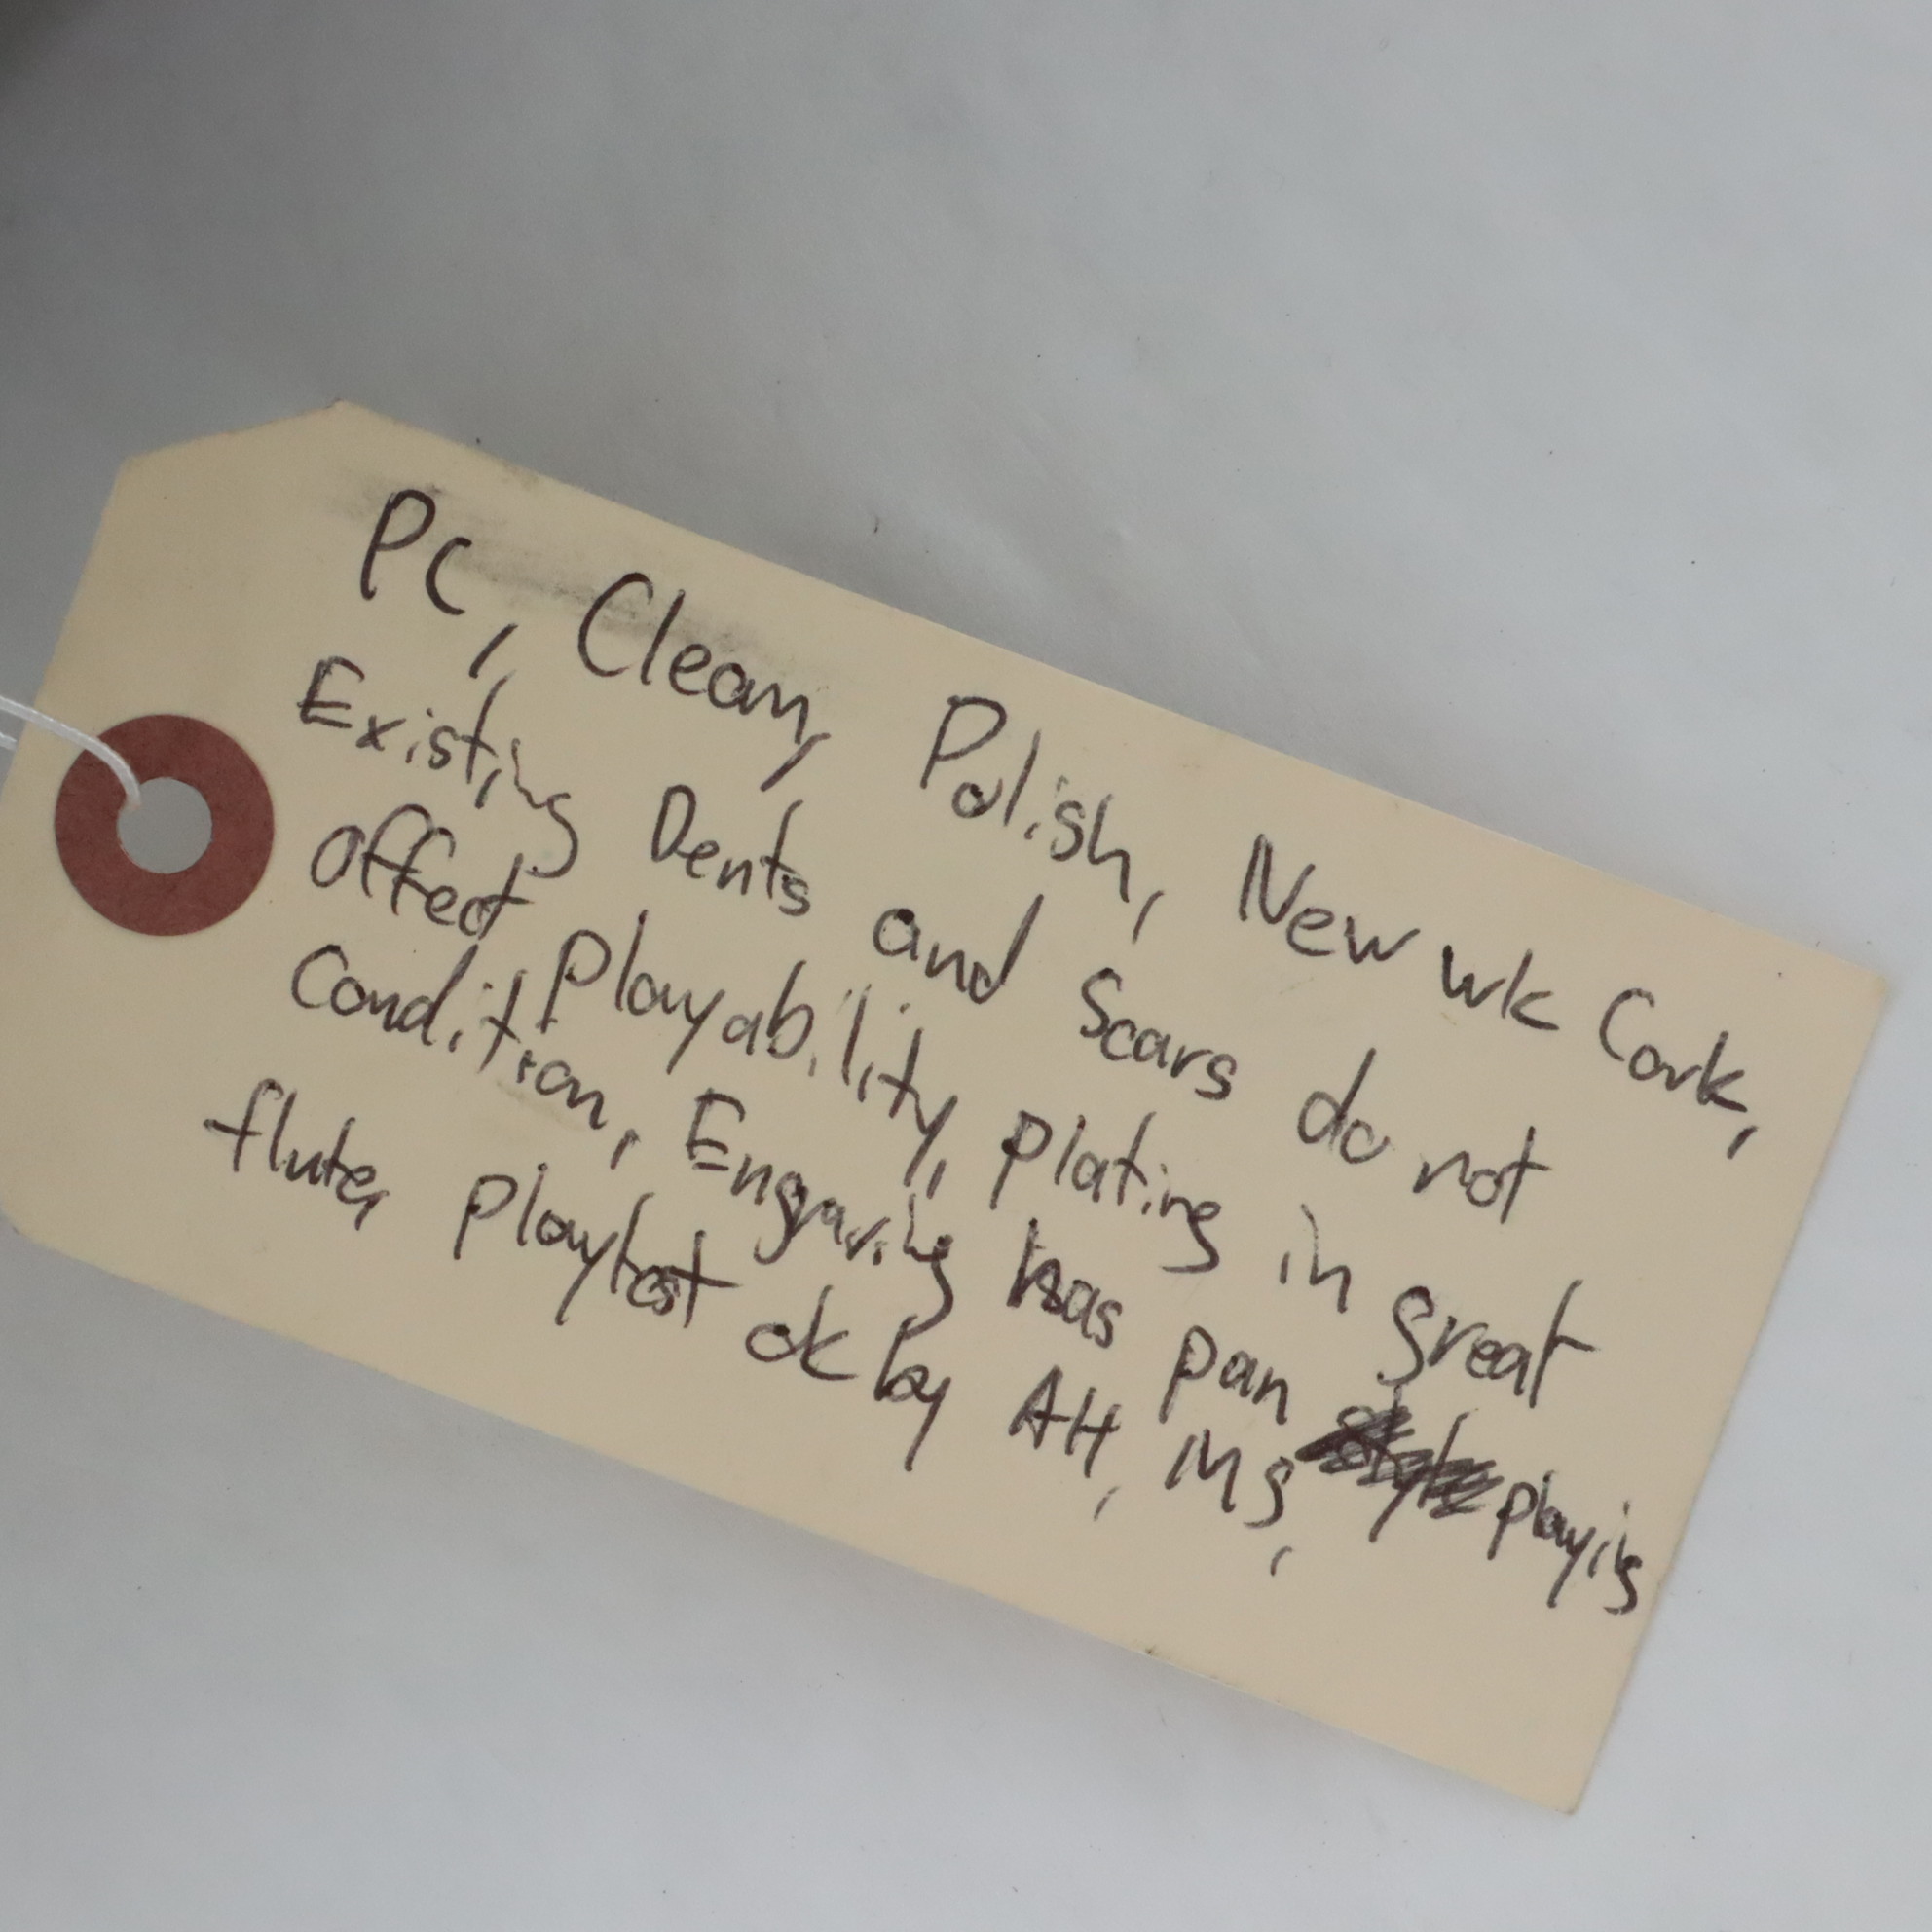 PC, Clean, Polish, New wk Cork,
Existing Dents and Scars do not
affect Playability, plating in great
Condition, Engraving has pan playing
flute, playtest ok by AH, MS,